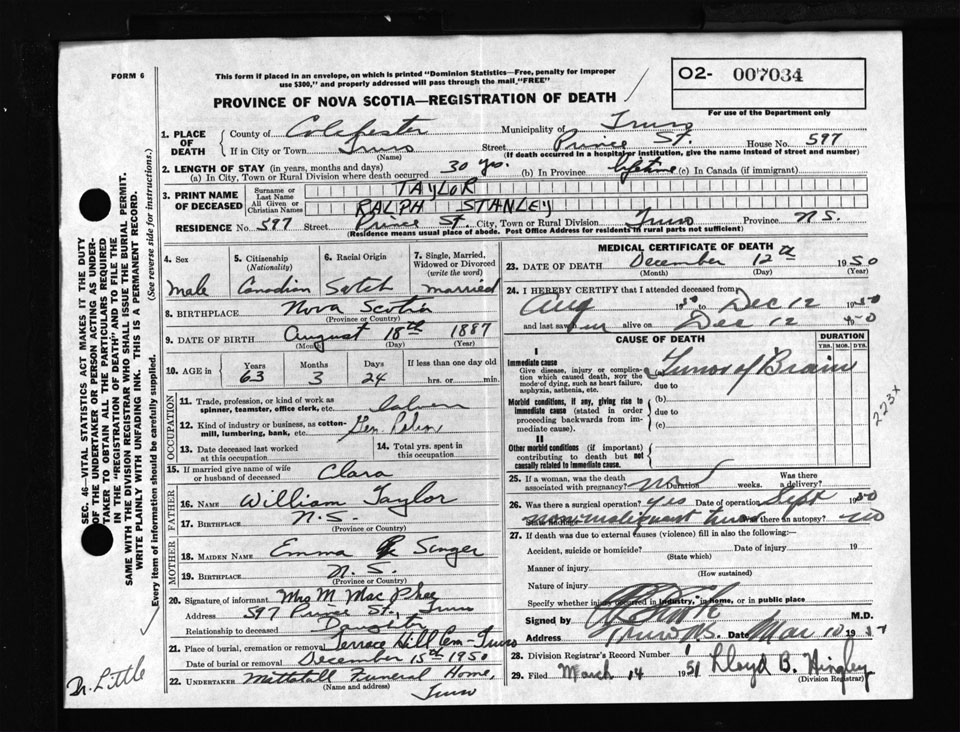 FORM 6
This form if placed in an envelope, on which is printed "Dominion Statistics—Free, penalty for improper
use $300," and properly addressed will pass through the mail "FREE"
O2- 007034
For use of the Department only
PROVINCE OF NOVA SCOTIA—REGISTRATION OF DEATH
1. PLACE OF DEATH
County of Colchester Municipality of Truro
If in City or Town Truro Street Prince St. House No. 597
(Name) (If death occurred in a hospital or institution, give the name instead of street and number)
2. LENGTH OF STAY (in years, months and days)
(a) In City, Town or Rural Division where death occurred 30 yrs. (b) In Province lifetime (c) In Canada (if immigrant)
3. PRINT NAME OF DECEASED
Surname or Last Name TAYLOR
All Given or Christian Names RALPH STANLEY
RESIDENCE No. 597 Street Prince St. City, Town or Rural Division Truro Province N.S.
(Residence means usual place of abode. Post Office Address for residents in rural parts not sufficient)
4. Sex
Male
5. Citizenship (Nationality)
Canadian
6. Racial Origin
Scotch
7. Single, Married, Widowed or Divorced (write the word)
married
8. BIRTHPLACE Nova Scotia
(Province or Country)
9. DATE OF BIRTH August 18th 1887
(Month) (Day) (Year)
10. AGE in Years 63 Months 3 Days 24 If less than one day old
hrs. or min.
OCCUPATION
11. Trade, profession, or kind of work as
spinner, teamster, office clerk, etc.
12. Kind of industry or business, as cotton-
mill, lumbering, bank, etc. Gen.
13. Date deceased last worked
at this occupation
14. Total yrs. spent in
this occupation
15. If married give name of wife
or husband of deceased Clara
FATHER
16. NAME William Taylor
17. BIRTHPLACE N.S.
(Province or Country)
MOTHER
18. MAIDEN NAME Emma Singer
19. BIRTHPLACE N.S.
(Province or Country)
20. Signature of informant Mrs M. MacPhee
Address 597 Prince St., Truro
Relationship to deceased Daughter
21. Place of burial, cremation or removal Terrace Hill Cem - Truro
Date of burial or removal December 15th 1950
22. UNDERTAKER Mattatall Funeral Home,
(Name and address) Truro
MEDICAL CERTIFICATE OF DEATH
23. DATE OF DEATH December 12th 1950
(Month) (Day) (Year)
24. I HEREBY CERTIFY that I attended deceased from
Aug 1950 to Dec 12 1950
and last saw him alive on Dec 12 1950
CAUSE OF DEATH
DURATION
YRS. MOS. DYS.
I
Immediate cause
Give disease, injury or complica-
tion which caused death, not the
mode of dying, such as heart failure,
asphyxia, asthenia, etc.
Tumor of Brain
due to
Morbid conditions, if any, giving rise to
immediate cause (stated in order
proceeding backwards from im-
mediate cause).
(b)
due to
(c)
223x
II
Other morbid conditions (if important)
contributing to death but not
causally related to immediate cause.
25. If a woman, was the death
associated with pregnancy? weeks. Was there
a delivery?
(Duration)
26. Was there a surgical operation? yes Date of operation Sept 1950
malignant tumor there an autopsy? no
27. If death was due to external causes (violence) fill in also the following:—
Accident, suicide or homicide? Date of injury 19
(State which)
Manner of injury
(How sustained)
Nature of injury
Specify whether injury occurred in industry, in home, or in public place
Signed by M.D.
Address Truro NS. Date Mar 10 19
28. Division Registrar's Record Number
29. Filed March 14 1951 Lloyd B. Hingley
(Division Registrar)
SEC. 46—VITAL STATISTICS ACT MAKES IT THE DUTY
OF THE UNDERTAKER OR PERSON ACTING AS UNDER-
TAKER TO OBTAIN ALL THE PARTICULARS REQUIRED
IN THE "REGISTRATION OF DEATH" AND TO FILE THE
SAME WITH THE DIVISION REGISTRAR WHO SHALL ISSUE THE BURIAL PERMIT.
WRITE PLAINLY WITH UNFADING INK. THIS IS A PERMANENT RECORD.
Every item of information should be carefully supplied. (See reverse side for instructions.)
Dr. Little